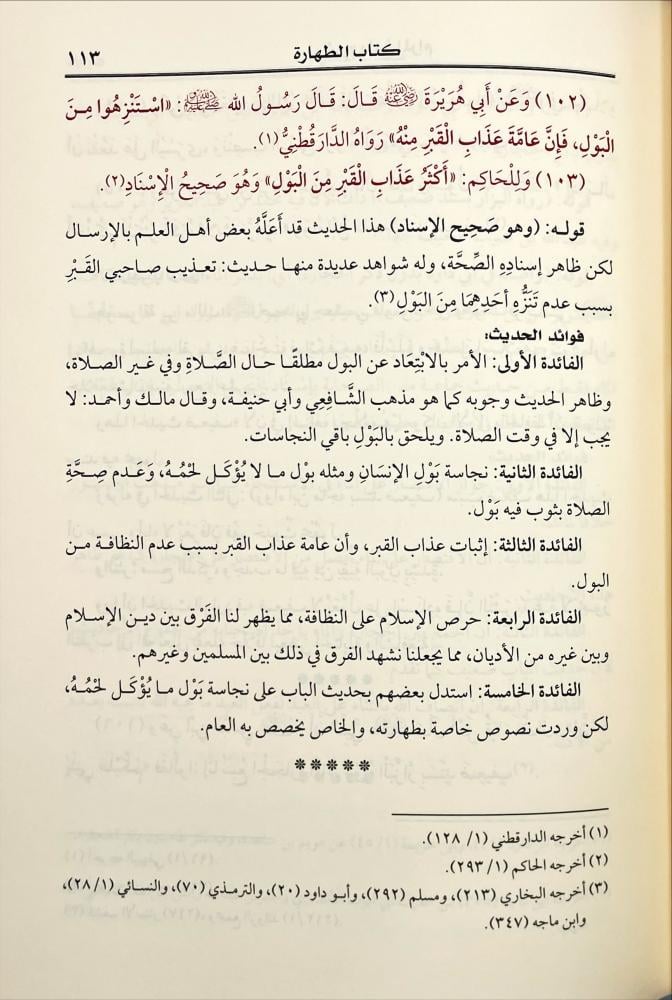 كتاب الطهارة ١١٣
(١٠٢) وَعَنْ أَبِي هُرَيْرَةَ رضي الله عنه قَالَ: قَالَ رَسُولُ الله ﷺ: «اسْتَنْزِهُوا مِنَ
الْبَوْلِ، فَإِنَّ عَامَّةَ عَذَابِ الْقَبْرِ مِنْهُ» رَوَاهُ الدَّارَقُطْنِيُّ(١).
(١٠٣) وَلِلْحَاكِمِ: «أَكْثَرُ عَذَابِ الْقَبْرِ مِنَ الْبَوْلِ» وَهُوَ صَحِيحُ الْإِسْنَادِ(٢).
قولـه: (وهو صَحِيح الإسناد) هذا الحديث قد أَعَلَّهُ بعض أهل العلم بالإرسال
لكن ظاهر إسنادِهِ الصِّحَّة، وله شواهد عديدة منهـا حديث: تعذيب صاحبي القَبْرِ
بسبب عدم تَنَزُّهِ أحَدِهِمَا مِنَ البَوْلِ(٣).
فوائد الحديث:
الفائدة الأولى: الأمر بالابْتِعَاد عن البول مطلقًا حال الصَّلاةِ وفي غير الصلاة،
وظاهر الحديث وجوبه كما هو مذهب الشَّافِعِي وأبي حنيفة، وقال مالك وأحمد: لا
يجب إلا في وقت الصلاة. ويلحق بالبَوْلِ باقي النجاسات.
الفائدة الثانية: نجاسة بَوْلِ الإنسَانِ ومثله بوْل ما لا يُؤْكَل لحْمُهُ، وَعَدم صِحَّةِ
الصلاة بثوب فيه بَوْل.
الفائدة الثالثة: إثبات عذاب القبر، وأن عامة عذاب القبر بسبب عدم النظافة من
البول.
الفائدة الرابعة: حرص الإسلام على النظافة، مما يظهر لنا الفَرْق بين ديـن الإسلام
وبين غيره من الأديان، مما يجعلنا نشهد الفرق في ذلك بين المسلمين وغيرهم.
الفائدة الخامسة: استدل بعضهم بحديث الباب على نجاسة بَوْل ما يُؤْكَل لحْمُهُ،
لكن وردت نصوص خاصة بطهارته، والخاص يخصص به العام.
*****
(١) أخرجه الدارقطني (١/ ١٢٨).
(٢) أخرجه الحاكم (١/ ٢٩٣).
(٣) أخرجه البخاري (٢١٣)، ومسلم (٢٩٢)، وأبو داود (٢٠)، والترمذي (٧٠)، والنسائي (١/ ٢٨)،
وابن ماجه (٣٤٧).